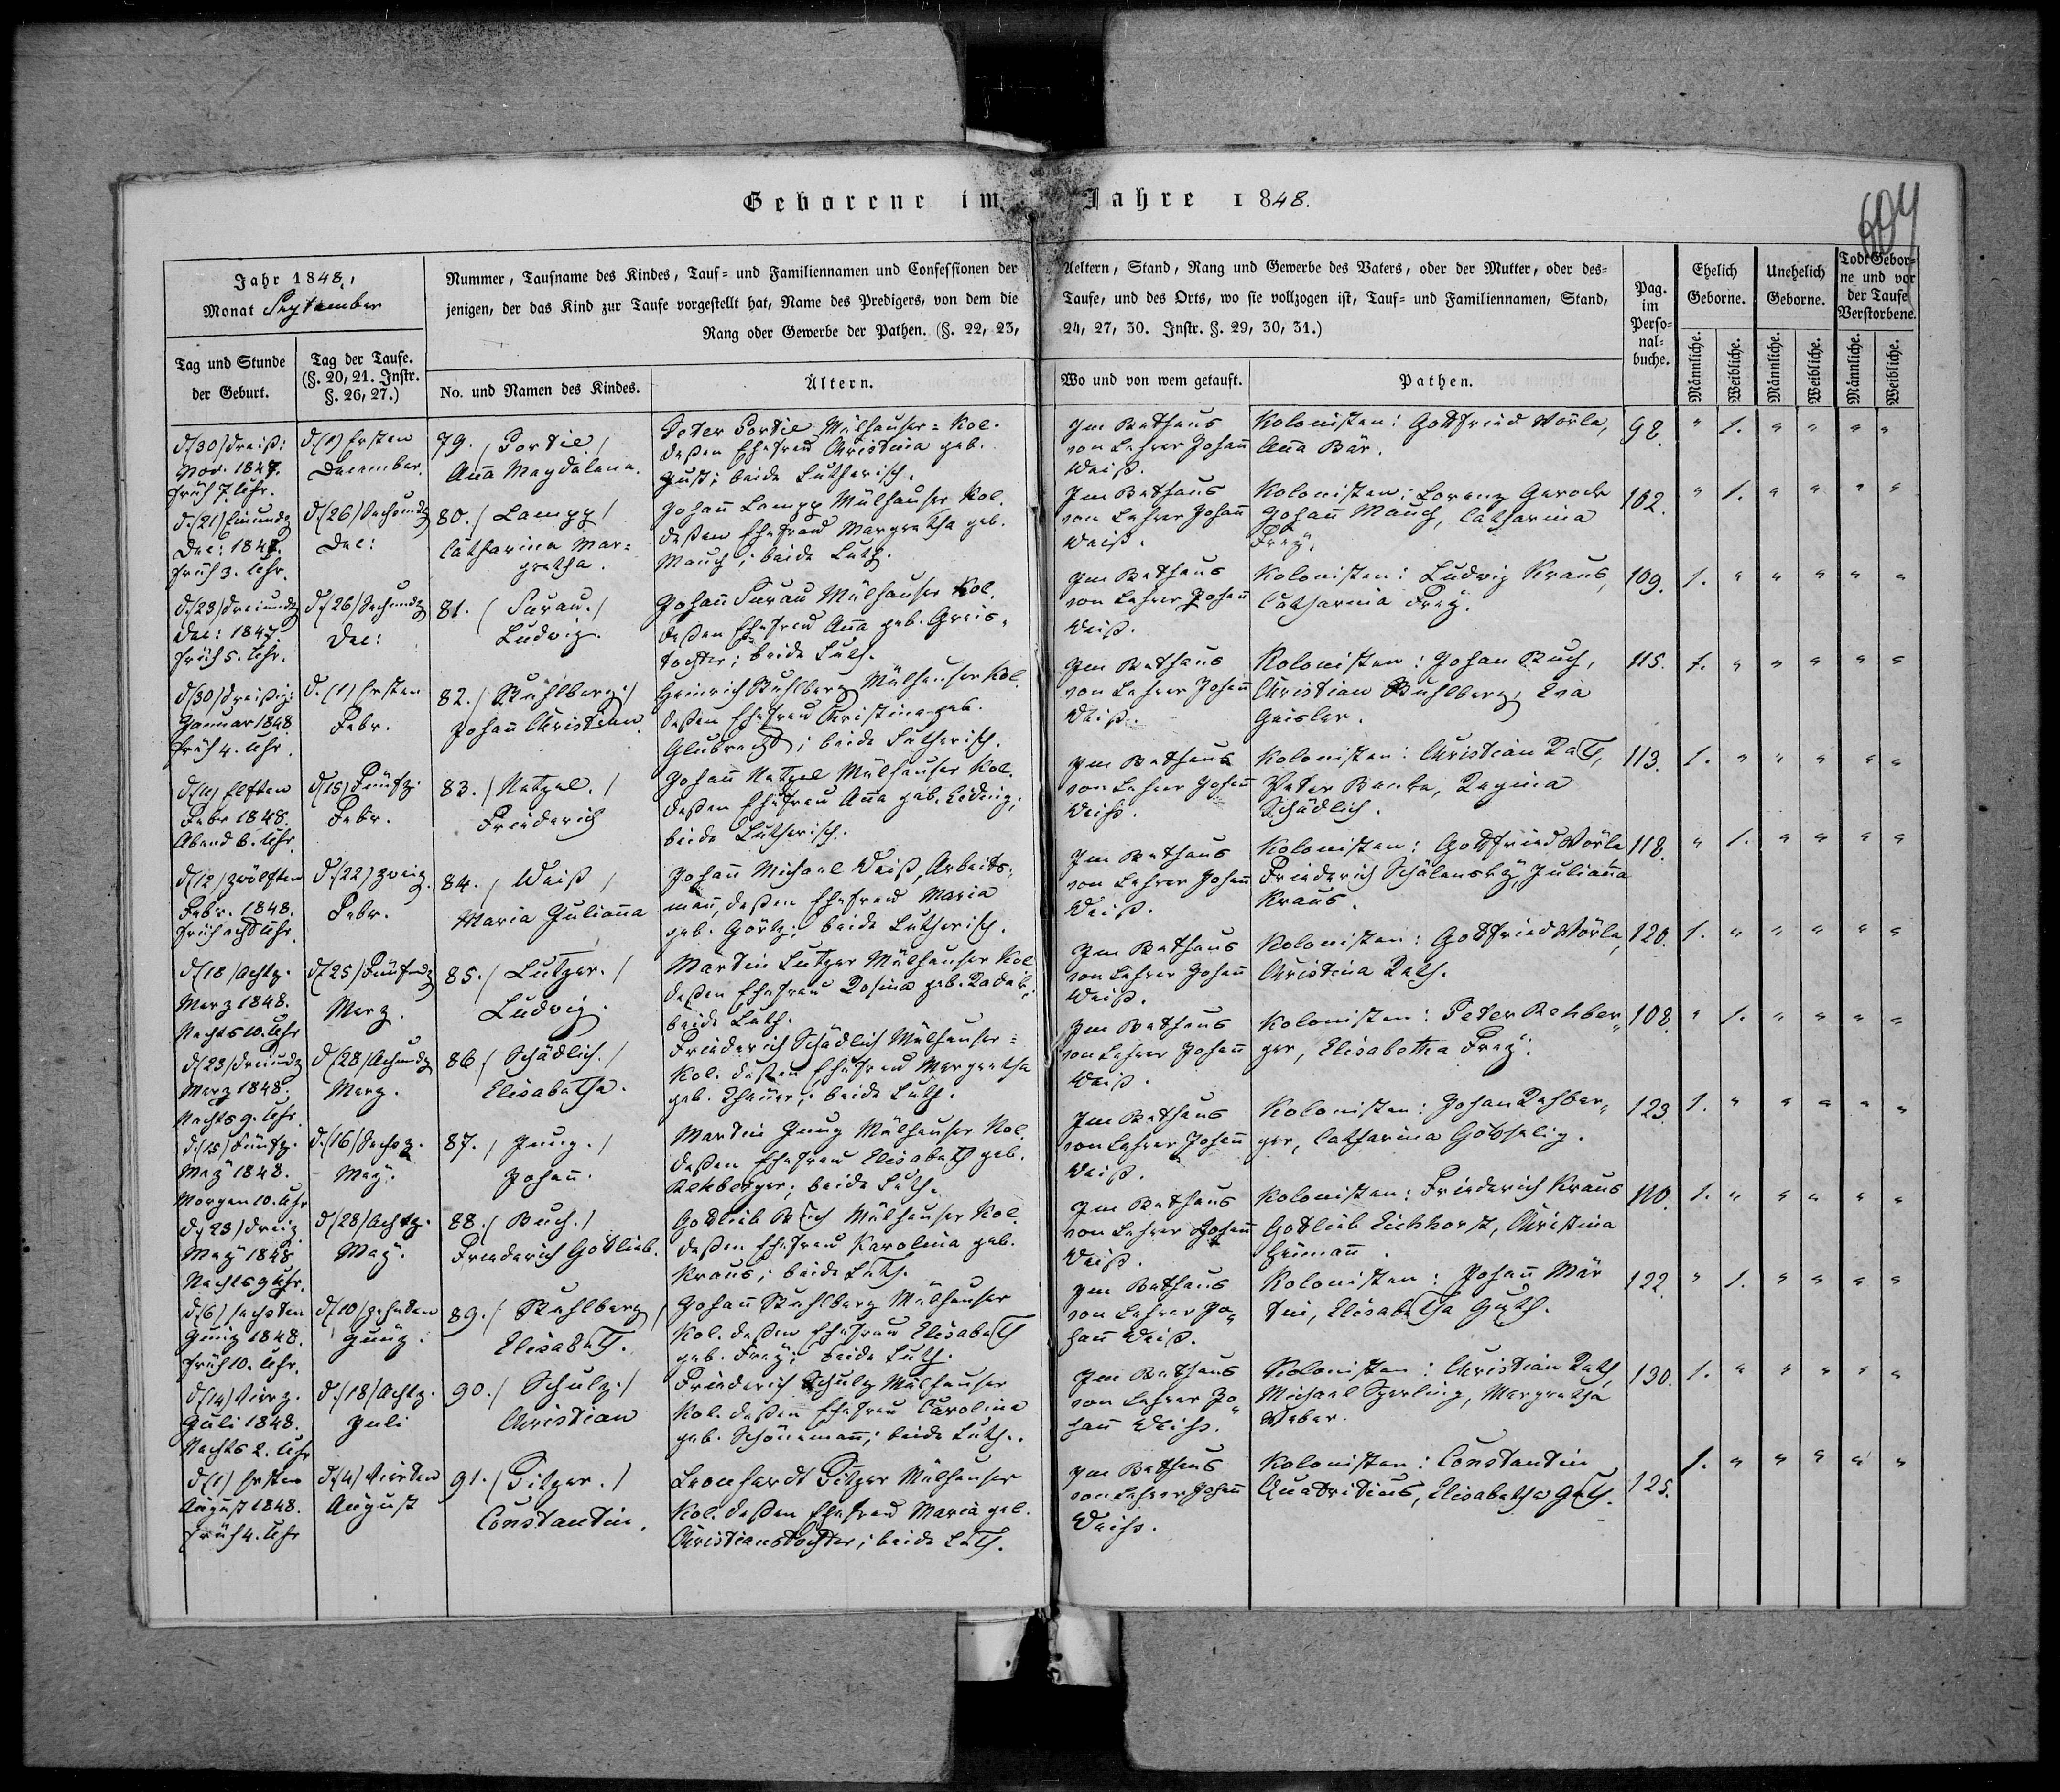 Geborene im Jahre 1848.
604
Jahr 1848.
Monat September
Nummer, Taufname des Kindes, Tauf- und Familiennamen und Confessionen der Aeltern, Stand, Rang und Gewerbe des Vaters, oder der Mutter, oder des-
jenigen, der das Kind zur Taufe vorgestellt hat, Name des Predigers, von dem die Taufe, und des Orts, wo sie vollzogen ist, Tauf- und Familiennamen, Stand,
Rang oder Gewerbe der Pathen. (§. 22, 23, 24, 27, 30. Instr. §. 29, 30, 31.)
Pag.
im
Perso-
nal-
buche.
Ehelich
Geborne.
Unehelich
Geborne.
Todt Gebor-
ne und vor
der Taufe
Verstorbene.
Männliche.
Weibliche.
Männliche.
Weibliche.
Männliche.
Weibliche.
Tag und Stunde
der Geburt.
Tag der Taufe.
(§. 20, 21. Instr.
§. 26, 27.)
No. und Namen des Kindes.
Ältern.
Wo und von wem getauft.
Pathen.
d. (30) dreiß:
Nov. 1847.
früh 7. Uhr.
d. (1) Ersten
December.
79. / Portie /
Anna Magdalena.
Peter Portie Mülhauser-Kol.
deßen Ehefrau Christina geb.
Gust; beide Lutherisch.
Im Bethaus
von Lehrer Johann
Weiß.
Kolonisten: Gottfried Wörle,
Anna Bär.
98. " 1. " " " "
d. (21) Einundz
Dec: 1847.
früh 3. Uhr.
d. (26) Sechsundz
Dec:
80. / Lampp /
Catharina Mar-
gretha.
Johann Lampp Mülhauser Kol.
deßen Ehefrau Margretha geb.
Mauch; beide Luth.
Im Bethaus
von Lehrer Johann
Weiß.
Kolonisten: Lorenz Gerock
Johann Mauch, Catharina
Frey.
102. " 1. " " " "
d. (23) Dreiundz
Dec: 1847.
früh 5. Uhr.
d. (26) Sechsundz
Dec:
81. / Surau. /
Ludwig.
Johann Surau Mülhauser Kol.
deßen Ehefrau Anna geb. Greis-
tochter; beide Luth.
Im Bethaus
von Lehrer Johann
Weiß.
Kolonisten: Ludwig Kraus,
Catharina Frey.
109. 1. " " " " "
d. (30) dreißig:
Januar 1848
früh 4. Uhr.
d. (1) Ersten
Febr.
82. / Stuhlberg /
Johann Christian.
Heinrich Stuhlberg Mülhauser Kol.
deßen Ehefrau Christina geb.
Glubrecht; beide Lutherisch.
Im Bethaus
von Lehrer Johann
Weiß.
Kolonisten: Johan Buch,
Christian Stuhlberg, Eva
Geisler.
115. 1. " " " " "
d. (11) Elften
Febr 1848.
Abend 6. Uhr.
d. (15) Fünfz:
Febr.
83. / Netzel. /
Friederich
Johann Netzel Mülhauser Kol.
deßen Ehefrau Anna geb. Leding;
beide Lutherisch.
Im Bethaus
von Lehrer Johann
Weiß.
Kolonisten: Christian Rath,
Peter Benke, Regina
Schädlich.
113. 1. " " " " "
d. (12) zwölften
Febr. 1848.
früh acht Uhr.
d. (22) zweiz.
Febr.
84. / Weiß /
Maria Julianna
Johann Michael Weiß, Arbeits-
mann, deßen Ehefrau Maria
geb. Görtz; beide Lutherisch.
Im Bethaus
von Lehrer Johann
Weiß.
Kolonisten: Gottfried Wörle
Friederich Schälensky, Julianna
Kraus.
118. " 1. " " " "
d. (18) Achtz.
Merz 1848.
Nachts 10. Uhr
d. (25) Fünfundz
Merz.
85. / Lutzer. /
Ludwig.
Martin Lutzer Mülhauser Kol
deßen Ehefrau Rosina geb. Radek;
beide Luth.
Im Bethaus
von Lehrer Johann
Weiß.
Kolonisten: Gottfried Wörle,
Christina Rath.
120. 1. " " " " "
d. (23) Dreiundz
Merz 1848.
Nachts 9. Uhr.
d. (28) Achundz
Merz.
86. / Schädlich. /
Elisabetha.
Friederich Schädlich Mülhauser-
Kol. deßen Ehefrau Margretha
geb. Thauer; beide Luth.
Im Bethaus
von Lehrer Johann
Weiß.
Kolonisten: Peter Rehber-
ger, Elisabetha Frey.
108. " 1. " " " "
d. (15) Fünfz.
May 1848.
Morgen 10. Uhr
d. (16) Sechsz.
May.
87. / Jung. /
Johann.
Martin Jung Mülhauser Kol.
deßen Ehefrau Elisabeth geb.
Rehberger; beide Luth.
Im Bethaus
von Lehrer Johann
Weiß.
Kolonisten: Johan Rehber-
ger, Catharina Göhselig.
123. 1. " " " " "
d. (23) dreiz
May 1848
Nachts 9 Uhr.
d. (28) Achtz.
May.
88. / Buch. /
Friederich Gottlieb.
Gottlieb Buch Mülhauser Kol.
deßen Ehefrau Karolina geb.
Kraus; beide Luth.
Im Bethaus
von Lehrer Johann
Weiß.
Kolonisten: Friederich Kraus
Gottlieb Eichhorst, Christina
Heimann.
110. 1. " " " " "
d. (6) sechsten
Juny 1848.
früh 10. Uhr.
d. (10) zehnten
Juny.
89. / Stuhlberg /
Elisabeth.
Johann Stuhlberg Mülhauser
Kol. deßen Ehefrau Elisabeth
geb. Frey; beide Luth.
Im Bethaus
von Lehrer Jo-
hann Weiß.
Kolonisten: Johann Mar
tin, Elisabetha Guth.
122. " 1. " " " "
d. (14) Vierz.
Juli 1848.
Nachts 2. Uhr
d. (18) Achtz.
Juli
90. / Schulz. /
Christian
Friederich Schulz Mülhauser
Kol. deßen Ehefrau Carolina
geb. Schönemann; beide Luth.
Im Bethaus
von Lehrer Jo-
hann Weiß.
Kolonisten: Christian Rath,
Michael Sperling, Margretha
Weber.
130. 1. " " " " "
d. (1) Ersten
August 1848.
früh 4. Uhr
d. (4) Vierten
August
91. / Pitzer. /
Constantin.
Leonhardt Pitzer Mülhauser
Kol. deßen Ehefrau Maria geb.
Christianstochter; beide Luth.
Im Bethaus
von Lehrer Johann
Weiß.
Kolonisten: Constantin
Quatritius, Elisabetha Guth.
125. 1. " " " " "